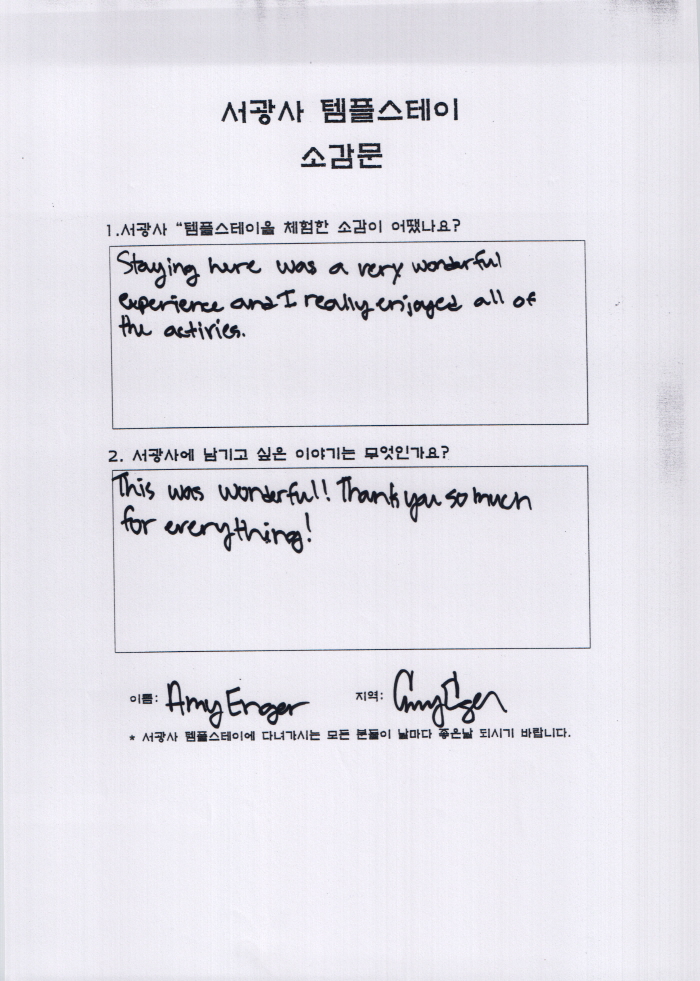 서광사 템플스테이
소감문
1.서광사 “템플스테이을 체험한 소감이 어땠나요?
Staying here was a very wonderful
experience and I really enjoyed all of
the activies.
2. 서광사에 남기고 싶은 이야기는 무엇인가요?
This was wonderful! Thank you so much
for everything!
이름: Amy Enger 지역:
* 서광사 템플스테이에 다녀가시는 모든 분들이 날마다 좋은날 되시기 바랍니다.